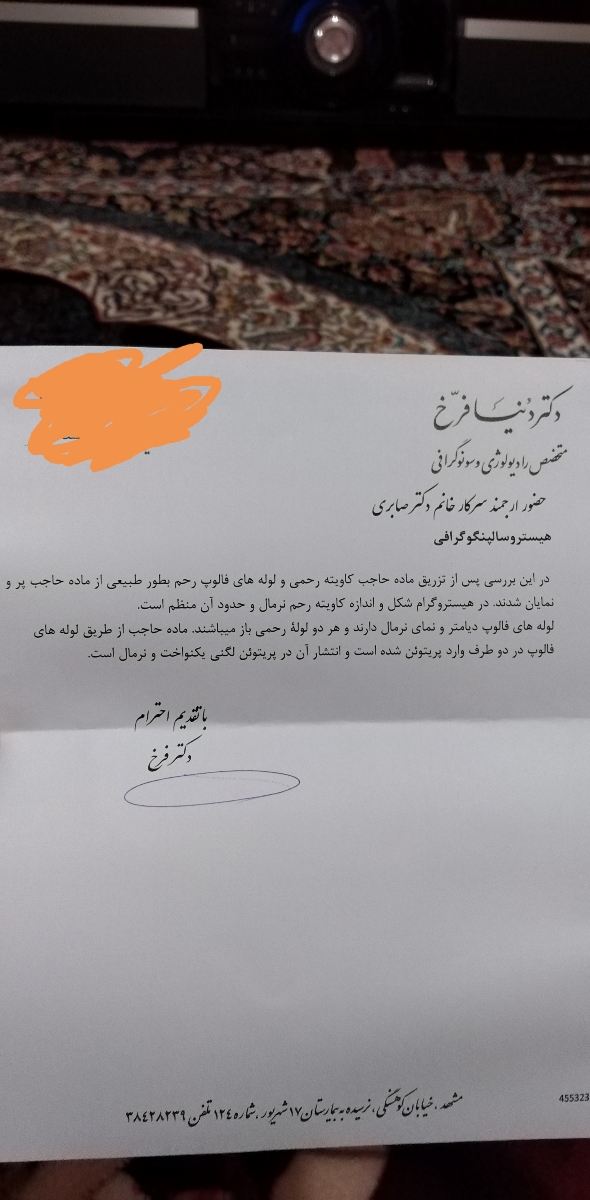 دکتر دنیا فرّخ
متخصص رادیولوژی و سونوگرافی
حضور ارجمند سرکار خانم دکتر صابری
هیستروسالپنگوگرافی
در این بررسی پس از تزریق ماده حاجب کاویته رحمی و لوله های فالوپ رحم بطور طبیعی از ماده حاجب پر و
نمایان شدند. در هیستروگرام شکل و اندازه کاویته رحم نرمال و حدود آن منظم است.
لوله های فالوپ دیامتر و نمای نرمال دارند و هر دو لولهٔ رحمی باز میباشند. ماده حاجب از طریق لوله های
فالوپ در دو طرف وارد پریتوئن شده است و انتشار آن در پریتوئن لگنی یکنواخت و نرمال است.
با تقدیم احترام
دکتر فرخ
مشهد ، خیابان کوهسنگی، نرسیده به بیمارستان ۱۷ شهریور ، شماره ۱۲٤ تلفن ۳۸٤۲۸۲۳۹
455323